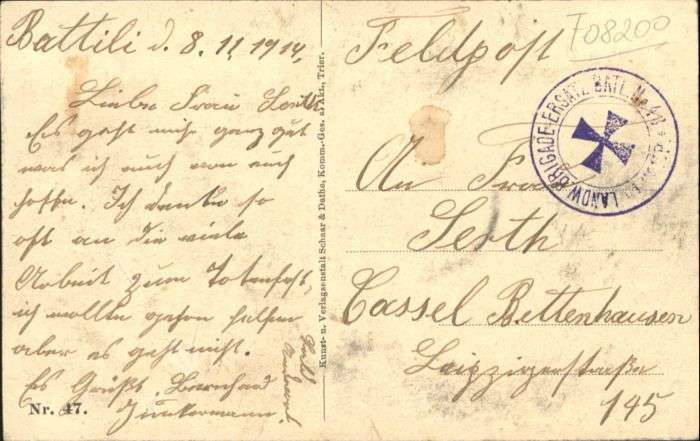 Battili d. 8.11.1914,
Liebe Frau Serth
Es geht mihr ganz gut
was ich auch von euch
hoffe. Ich denke so
oft an die viele
Arbeit zum Totenfest,
ich wollte gern helfen
aber es geht nicht.
Es Grüßt Bernhard
Junkermann.
Nr. 47.
Kunst- u. Verlagsanstalt Schaar & Dathe, Komm.-Ges. a. Akt., Trier.
Feldpost
F08200
LANDW. BRIGADE-ERSATZ BATL. No.
An Frau
Serth
Cassel Bettenhausen
Leipzigerstraße
145